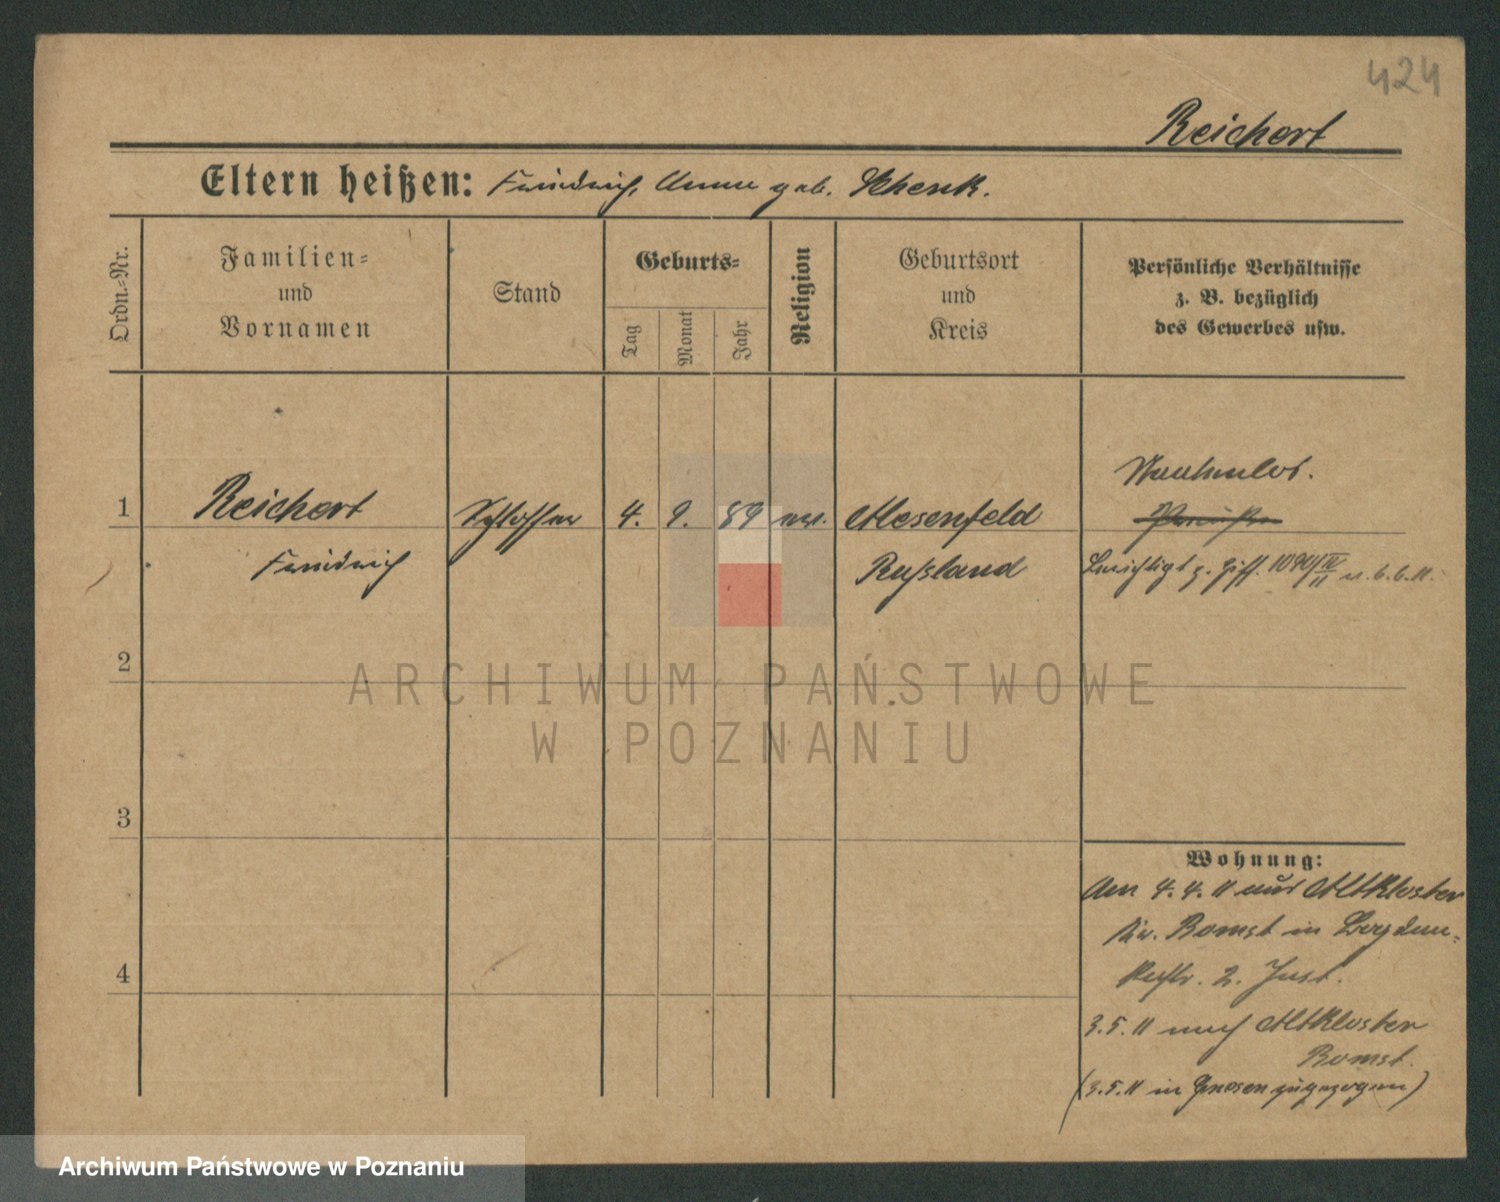 424
Reichert
Eltern heißen: Friedrich, Anna geb. Schenk.
Ordn.-Nr.
Familien-
und
Vornamen
Stand
Geburts-
Tag
Monat
Jahr
Religion
Geburtsort
und
Kreis
Persönliche Verhältnisse
z. B. bezüglich
des Gewerbes usw.
1
Reichert Schlosser 4. 9. 89 ev. Mesenfeld
Friedrich Rußland
Staatenlos.
Preuße
Berichtigt z. Ziff. 1090/IV 11 v. 6.6.11.
2
3
4
Wohnung:
Am 4.4.11 aus Altkloster
Kr. Bomst in
2.
3.5.11 nach Altkloster
Bomst.
(3.5.11 in Gnesen zugezogen)
ARCHIWUM PAŃSTWOWE
W POZNANIU
Archiwum Państwowe w Poznaniu